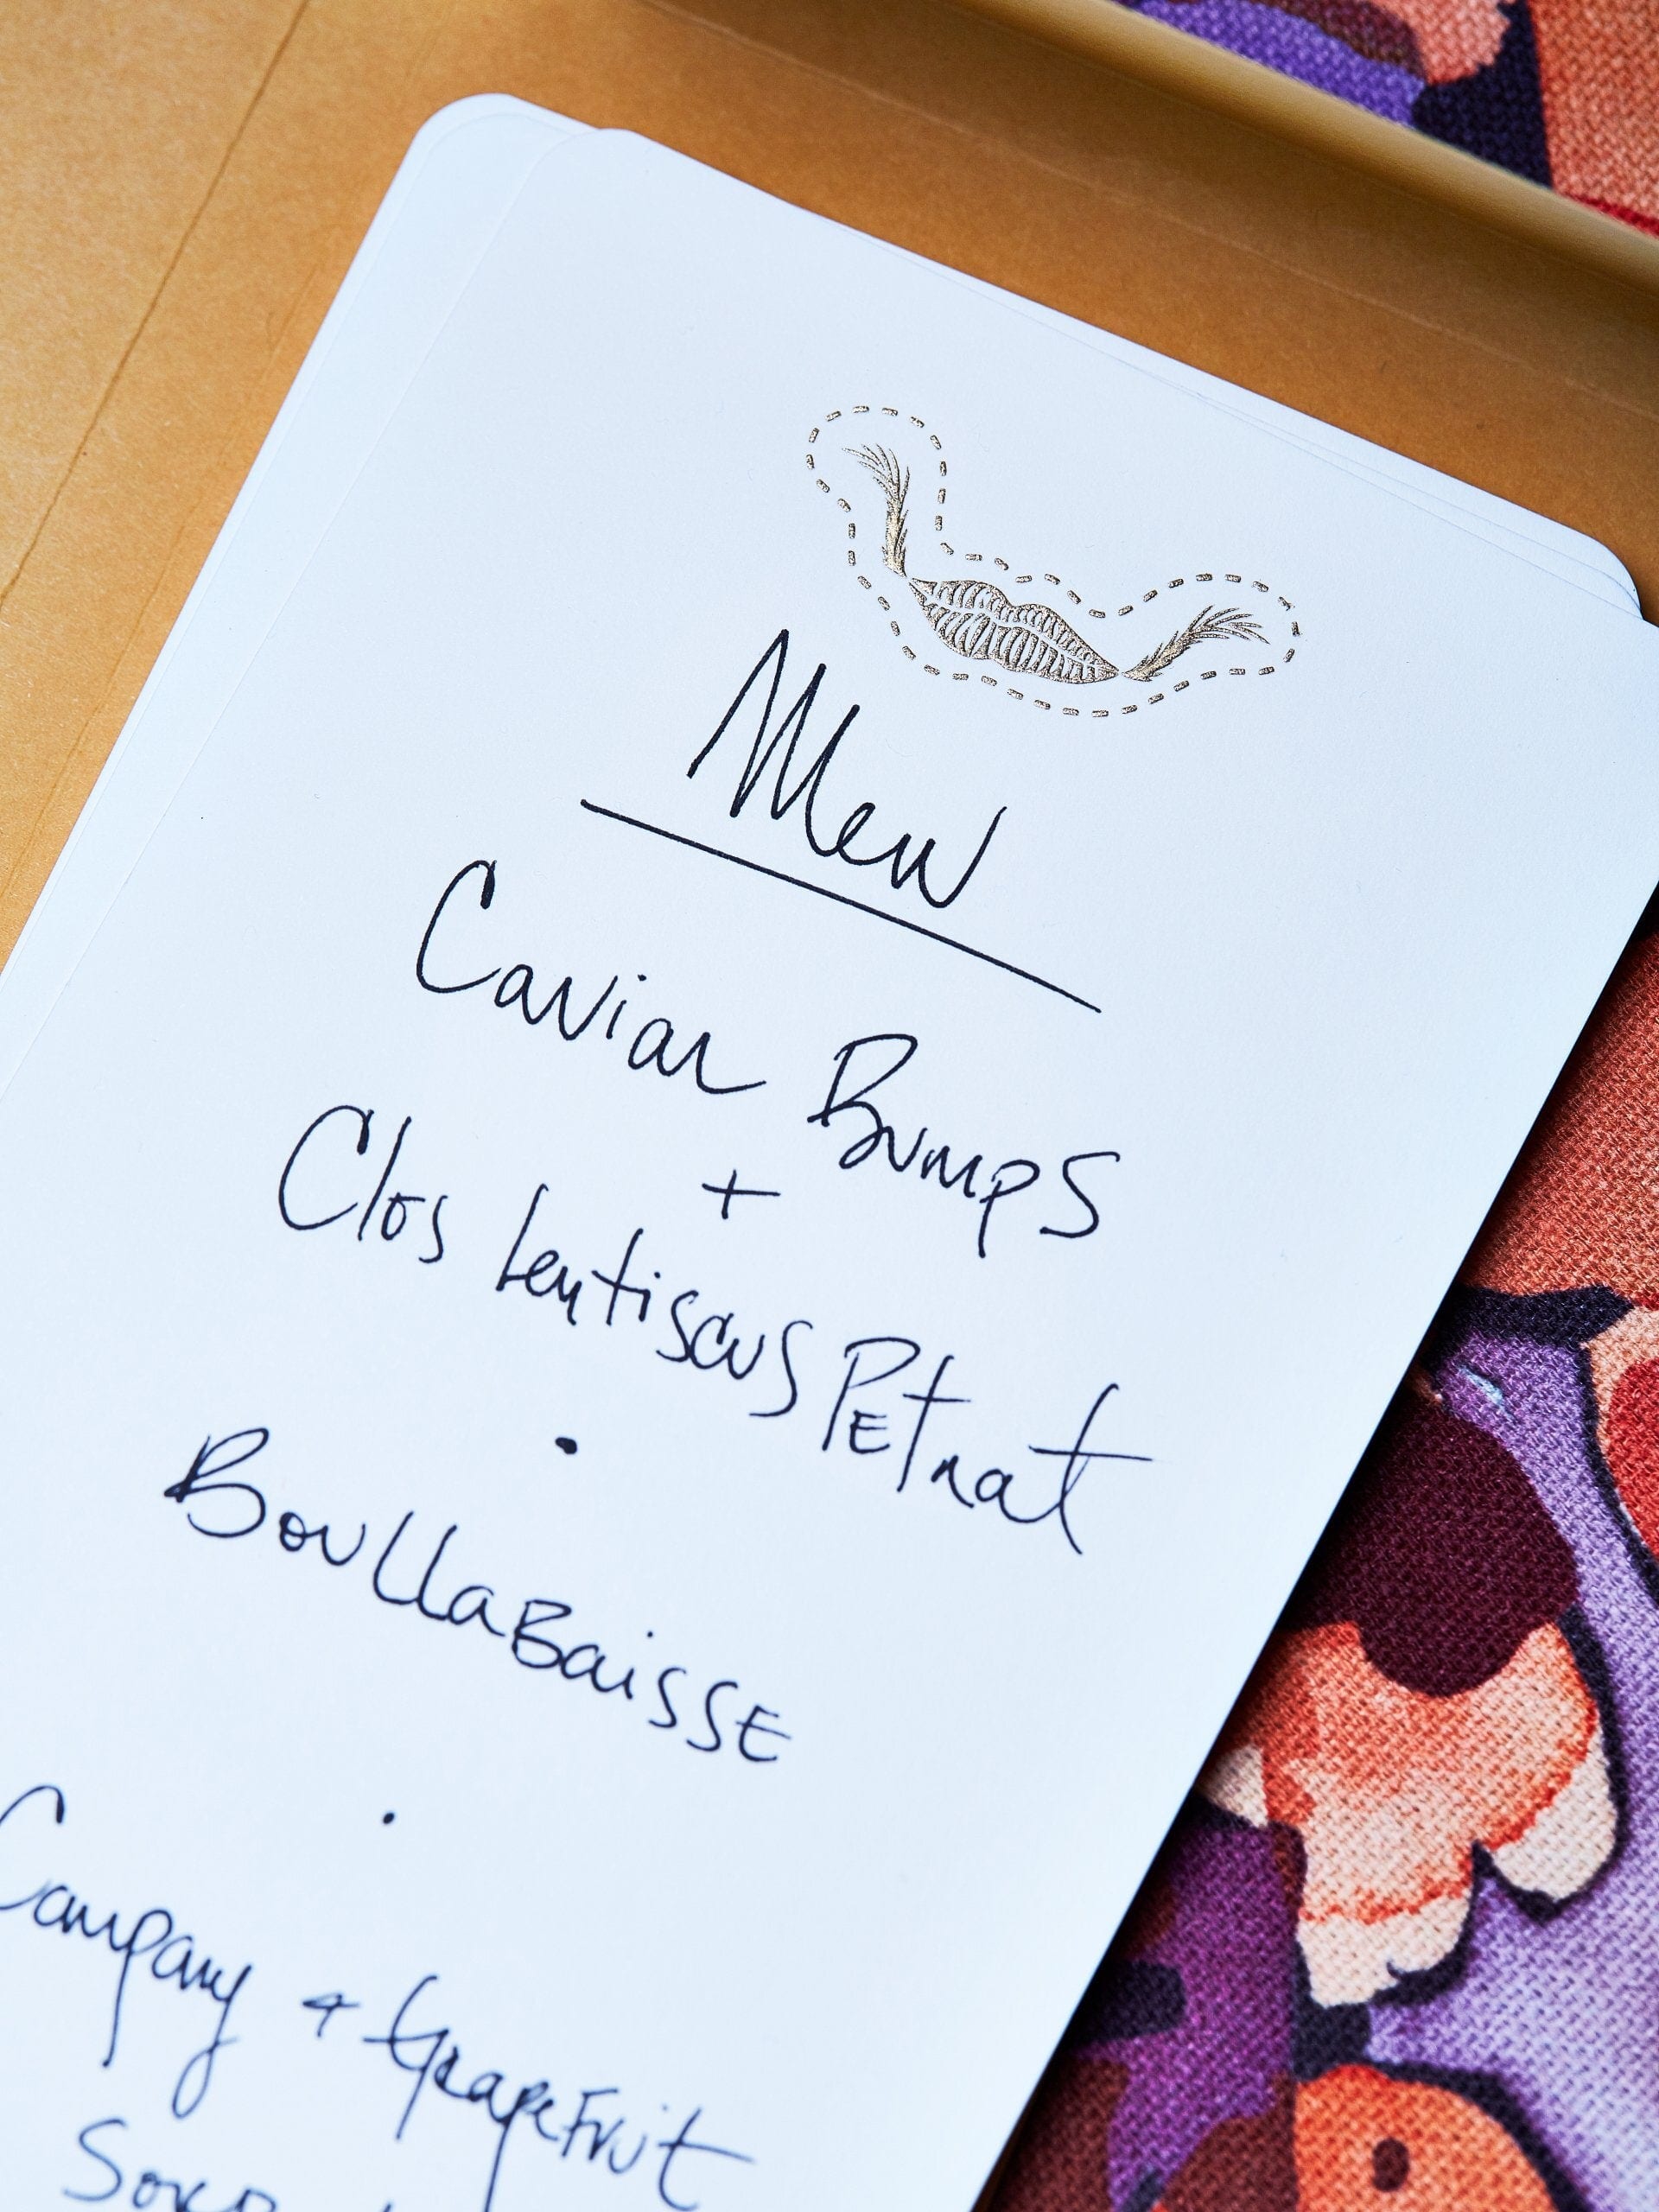 Menu
Caviar Bumps
+
Clos Lentiscus PETnat
•
BoullaBaisSE
•
Campary + GrapeFruit